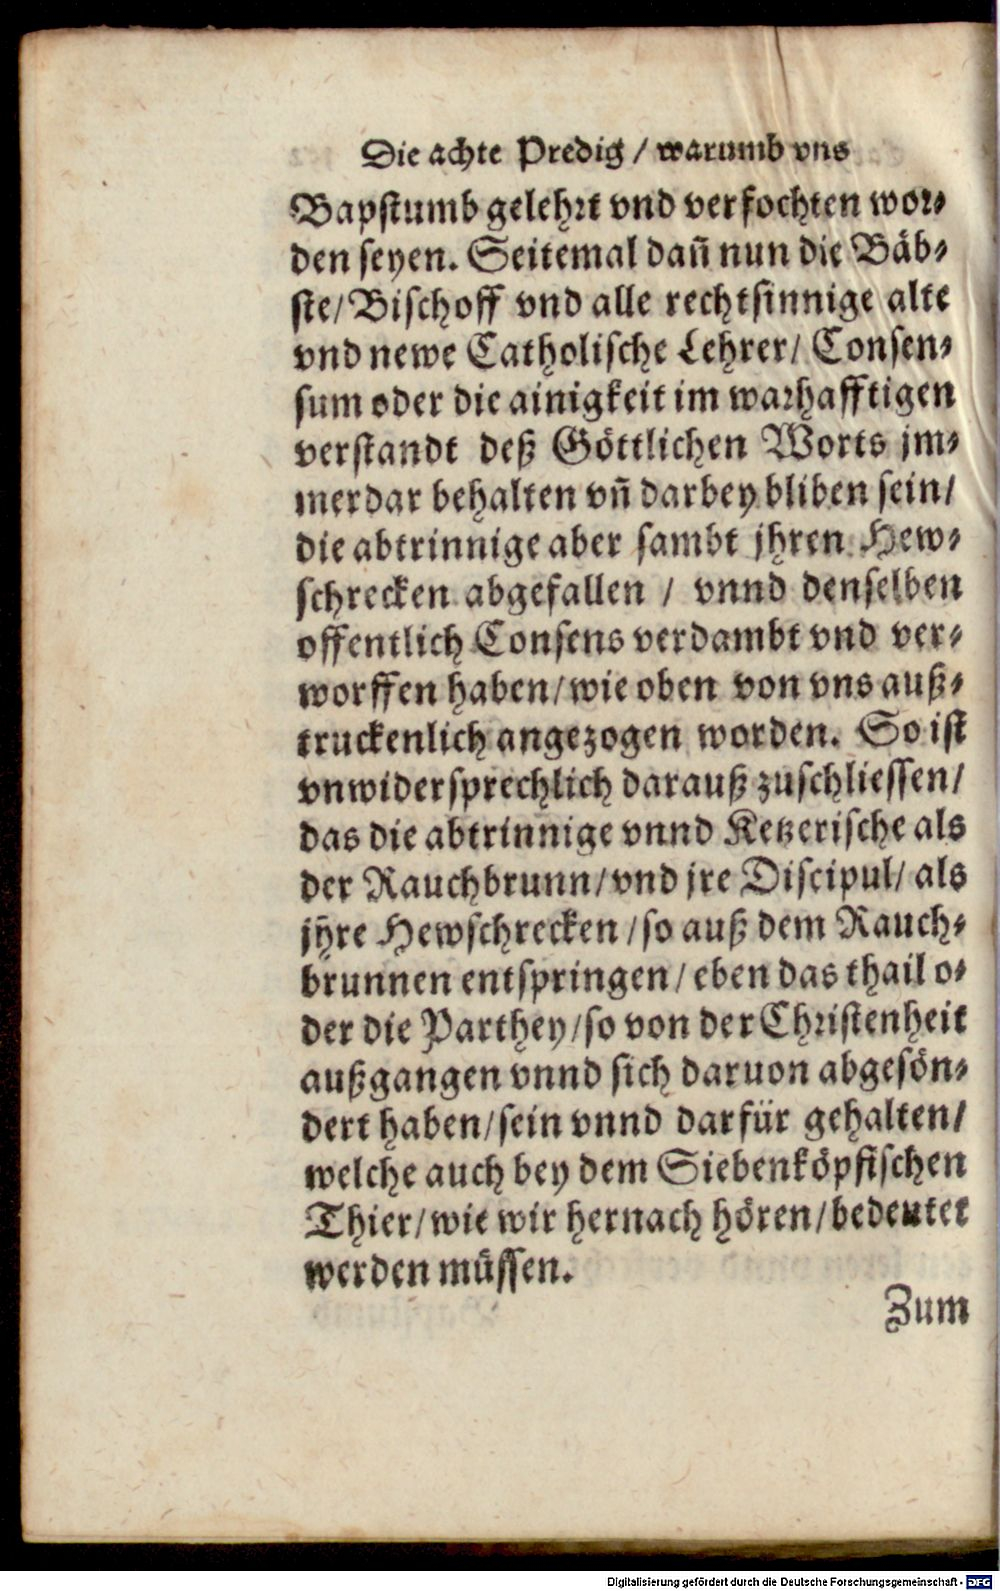 Die achte Predig / warumb vns
Bapſtumb gelehrt vnd verfochten wor⸗
den ſeyen. Seitemal dan̄ nun die Bäb⸗
ſte/ Biſchoff vnd alle rechtſinnige alte
vnd newe Catholiſche Lehrer/ Conſen⸗
ſum oder die ainigkeit im warhafftigen
verſtandt deß Göttlichen Worts jm⸗
merdar behalten vn̄ darbey bliben ſein/
die abtrinnige aber ſambt jhren Hew⸗
ſchrecken abgefallen / vnnd denſelben
offentlich Conſens verdambt vnd ver⸗
worffen haben/ wie oben von vns auß⸗
truckenlich angezogen worden. So iſt
vnwiderſprechlich darauß zuſchlieſſen/
das die abtrinnige vnnd Ketzeriſche als
der Rauchbrunn/ vnd jre Diſcipul/ als
jhre Hewſchrecken / ſo auß dem Rauch⸗
brunnen entſpringen/ eben das thail o⸗
der die Parthey/ ſo von der Chriſtenheit
außgangen vnnd ſich daruon abgeſön⸗
dert haben/ ſein vnnd darfür gehalten/
welche auch bey dem Siebenköpfiſchen
Thier/ wie wir hernach hören/ bedeutet
werden müſſen.
Zum
Digitalisierung gefördert durch die Deutsche Forschungsgemeinschaft - DFG